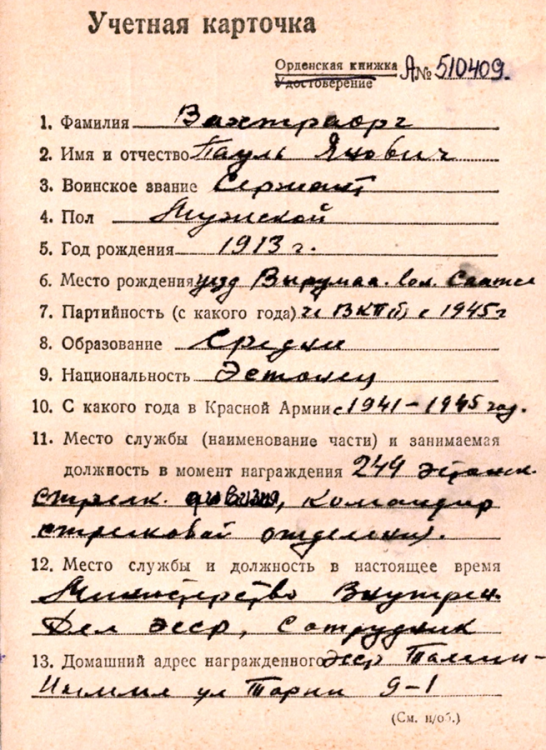 Учетная карточка
Орденская книжка А№ 510409.
Удостоверение
1. Фамилия Вахтраорг
2. Имя и отчество Пауль Янович
3. Воинское звание Сержант
4. Пол Мужской
5. Год рождения 1913 г.
6. Место рождения уезд Вырумаа. вол.
7. Партийность (с какого года) ч. ВКП(б) с 1945 г
8. Образование Средни
9. Национальность Эстонец
10. С какого года в Красной Армии с 1941-1945 год.
11. Место службы (наименование части) и занимаемая
должность в момент награждения 249 эстонск.
стрелк. дивизия, командир
стрелковой отделения.
12. Место службы и должность в настоящее время
Министерство Внутрен.
Дел ЭССР, сотрудник
13. Домашний адрес награжденного ЭССР Таллин-
Нымме ул 9-1
(См. н/об.)